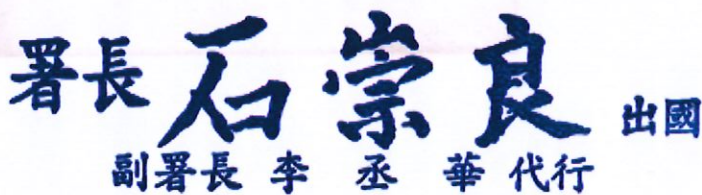 署長 石崇良 出國
副署長 李丞華 代行